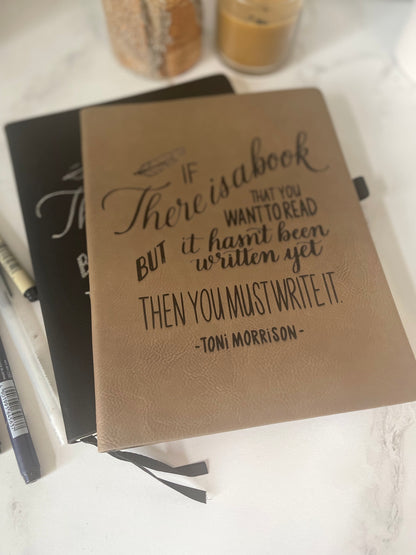 IF
There is a book
THAT YOU
WANT TO READ
BUT it hasn't been
written yet
THEN YOU MUST WRITE IT.
-TONI MORRISON-
Th
BU